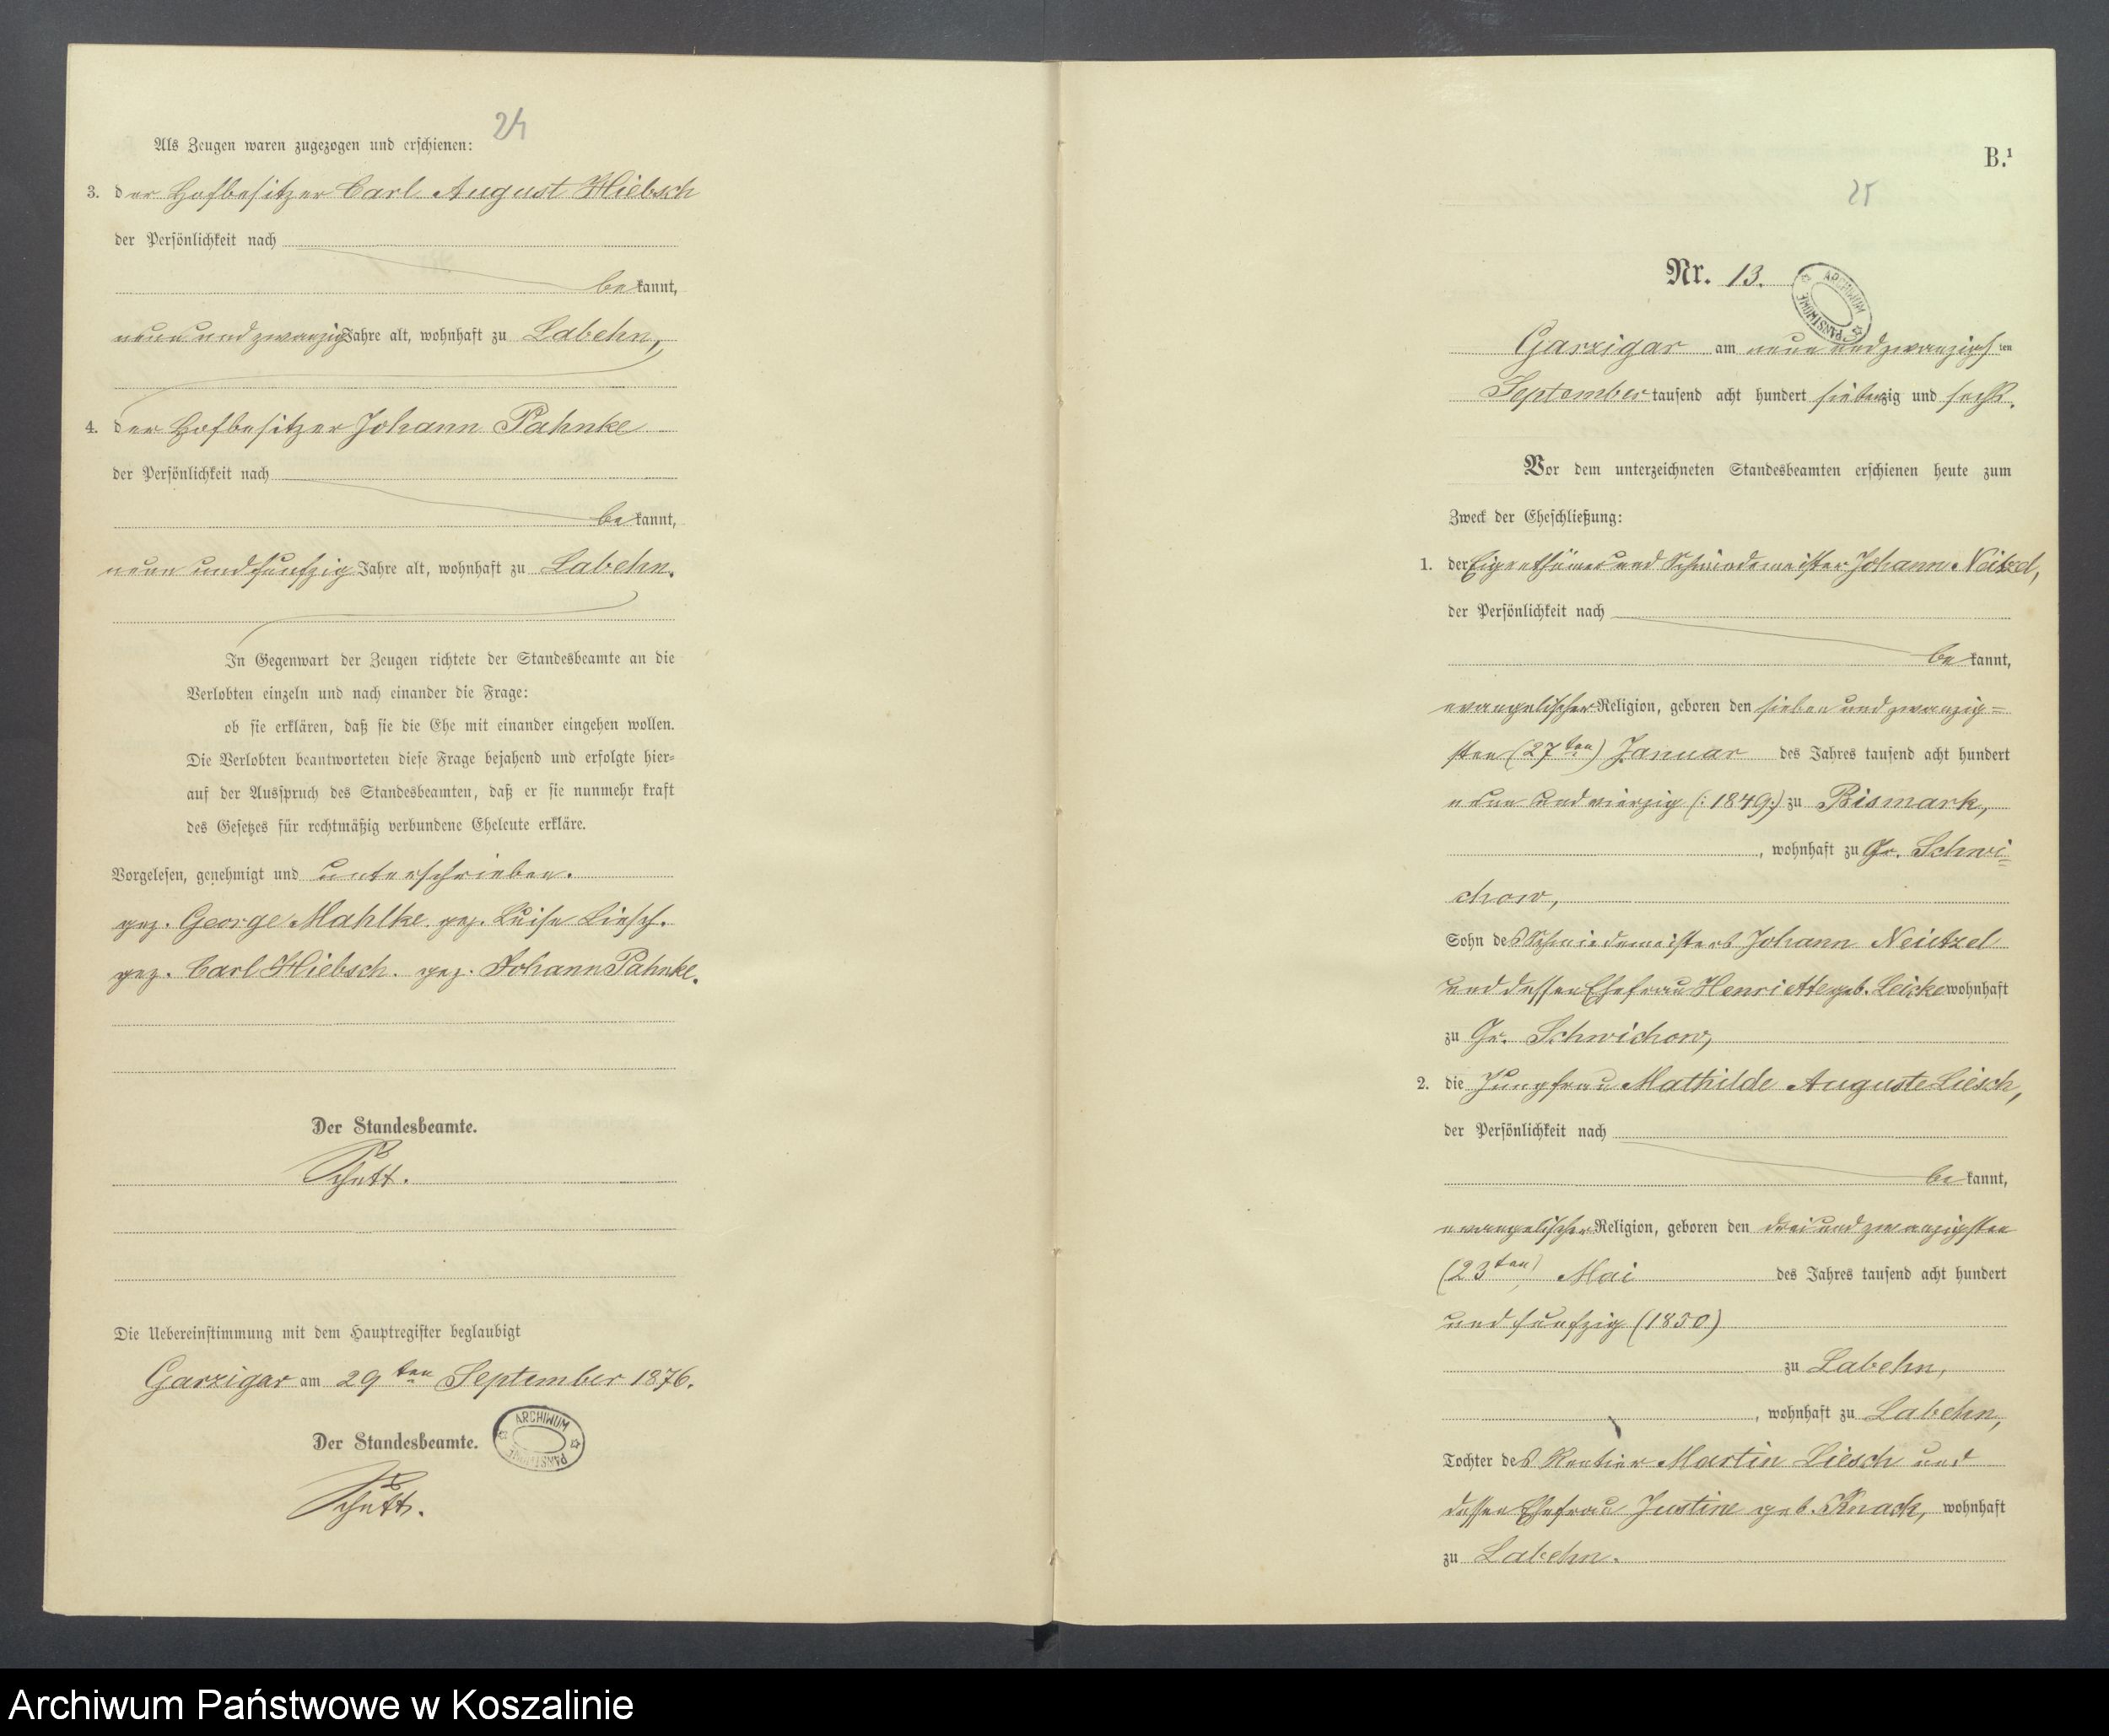 24
Als Zeugen waren zugezogen und erschienen:
3. der Hofbesitzer Carl August Hiebsch
der Persönlichkeit nach
bekannt,
neun und zwanzig Jahre alt, wohnhaft zu Labehn,
4. der Hofbesitzer Johann Pahnke
der Persönlichkeit nach
bekannt,
neun und funfzig Jahre alt, wohnhaft zu Labehn.
In Gegenwart der Zeugen richtete der Standesbeamte an die
Verlobten einzeln und nach einander die Frage:
ob sie erklären, daß sie die Ehe mit einander eingehen wollen.
Die Verlobten beantworteten diese Frage bejahend und erfolgte hier=
auf der Ausspruch des Standesbeamten, daß er sie nunmehr kraft
des Gesetzes für rechtmäßig verbundene Eheleute erkläre.
Vorgelesen, genehmigt und unterschrieben.
gez. George Mahlke. gez. Luise Liesch.
gez. Carl Hiebsch. gez. Johann Pahnke.
Der Standesbeamte.
Schutt.
Die Uebereinstimmung mit dem Hauptregister beglaubigt
Garzigar am 29ten September 1876.
Der Standesbeamte.
ARCHIWUM PAŃSTWOWE
Schutt.
B.¹
25
Nr. 13.
ARCHIWUM PAŃSTWOWE
Garzigar am neun und zwanzigsten
September tausend acht hundert siebenzig und sechs.
Vor dem unterzeichneten Standesbeamten erschienen heute zum
Zweck der Eheschließung:
1. der Eigenthümer und Schmiedemeister Johann Neitzel,
der Persönlichkeit nach
bekannt,
evangelischer Religion, geboren den sieben und zwanzig=
sten (27ten) Januar des Jahres tausend acht hundert
neun und vierzig (:1849:) zu Bismark,
, wohnhaft zu Gr. Schwi=
chow,
Sohn des Schmiedemeisters Johann Neitzel
und dessen Ehefrau Henriette geb. Leicke wohnhaft
zu Gr. Schwichow,
2. die Jungfrau Mathilde Auguste Liesch,
der Persönlichkeit nach
bekannt,
evangelischer Religion, geboren den drei und zwanzigsten
(23ten) Mai des Jahres tausend acht hundert
und funfzig (1850)
zu Labehn,
, wohnhaft zu Labehn,
Tochter des Rentier Martin Liesch und
dessen Ehefrau Justine geb. Knack, wohnhaft
zu Labehn.
Archiwum Państwowe w Koszalinie